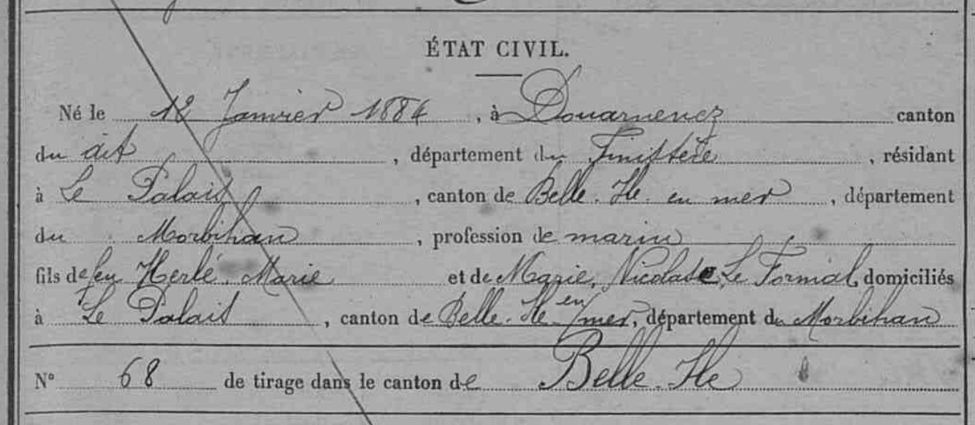 ÉTAT CIVIL.
Né le 12 Janvier 1884, à Douarnenez canton
du dit, département du Finistère, résidant
à Le Palais, canton de Belle-Ile en mer, département
du Morbihan, profession de marin
fils de feu Herlé Marie et de Marie, Nicolase, Le Formal, domiciliés
à Le Palais, canton de Belle-Ile en mer, département du Morbihan
N° 68 de tirage dans le canton de Belle-Ile